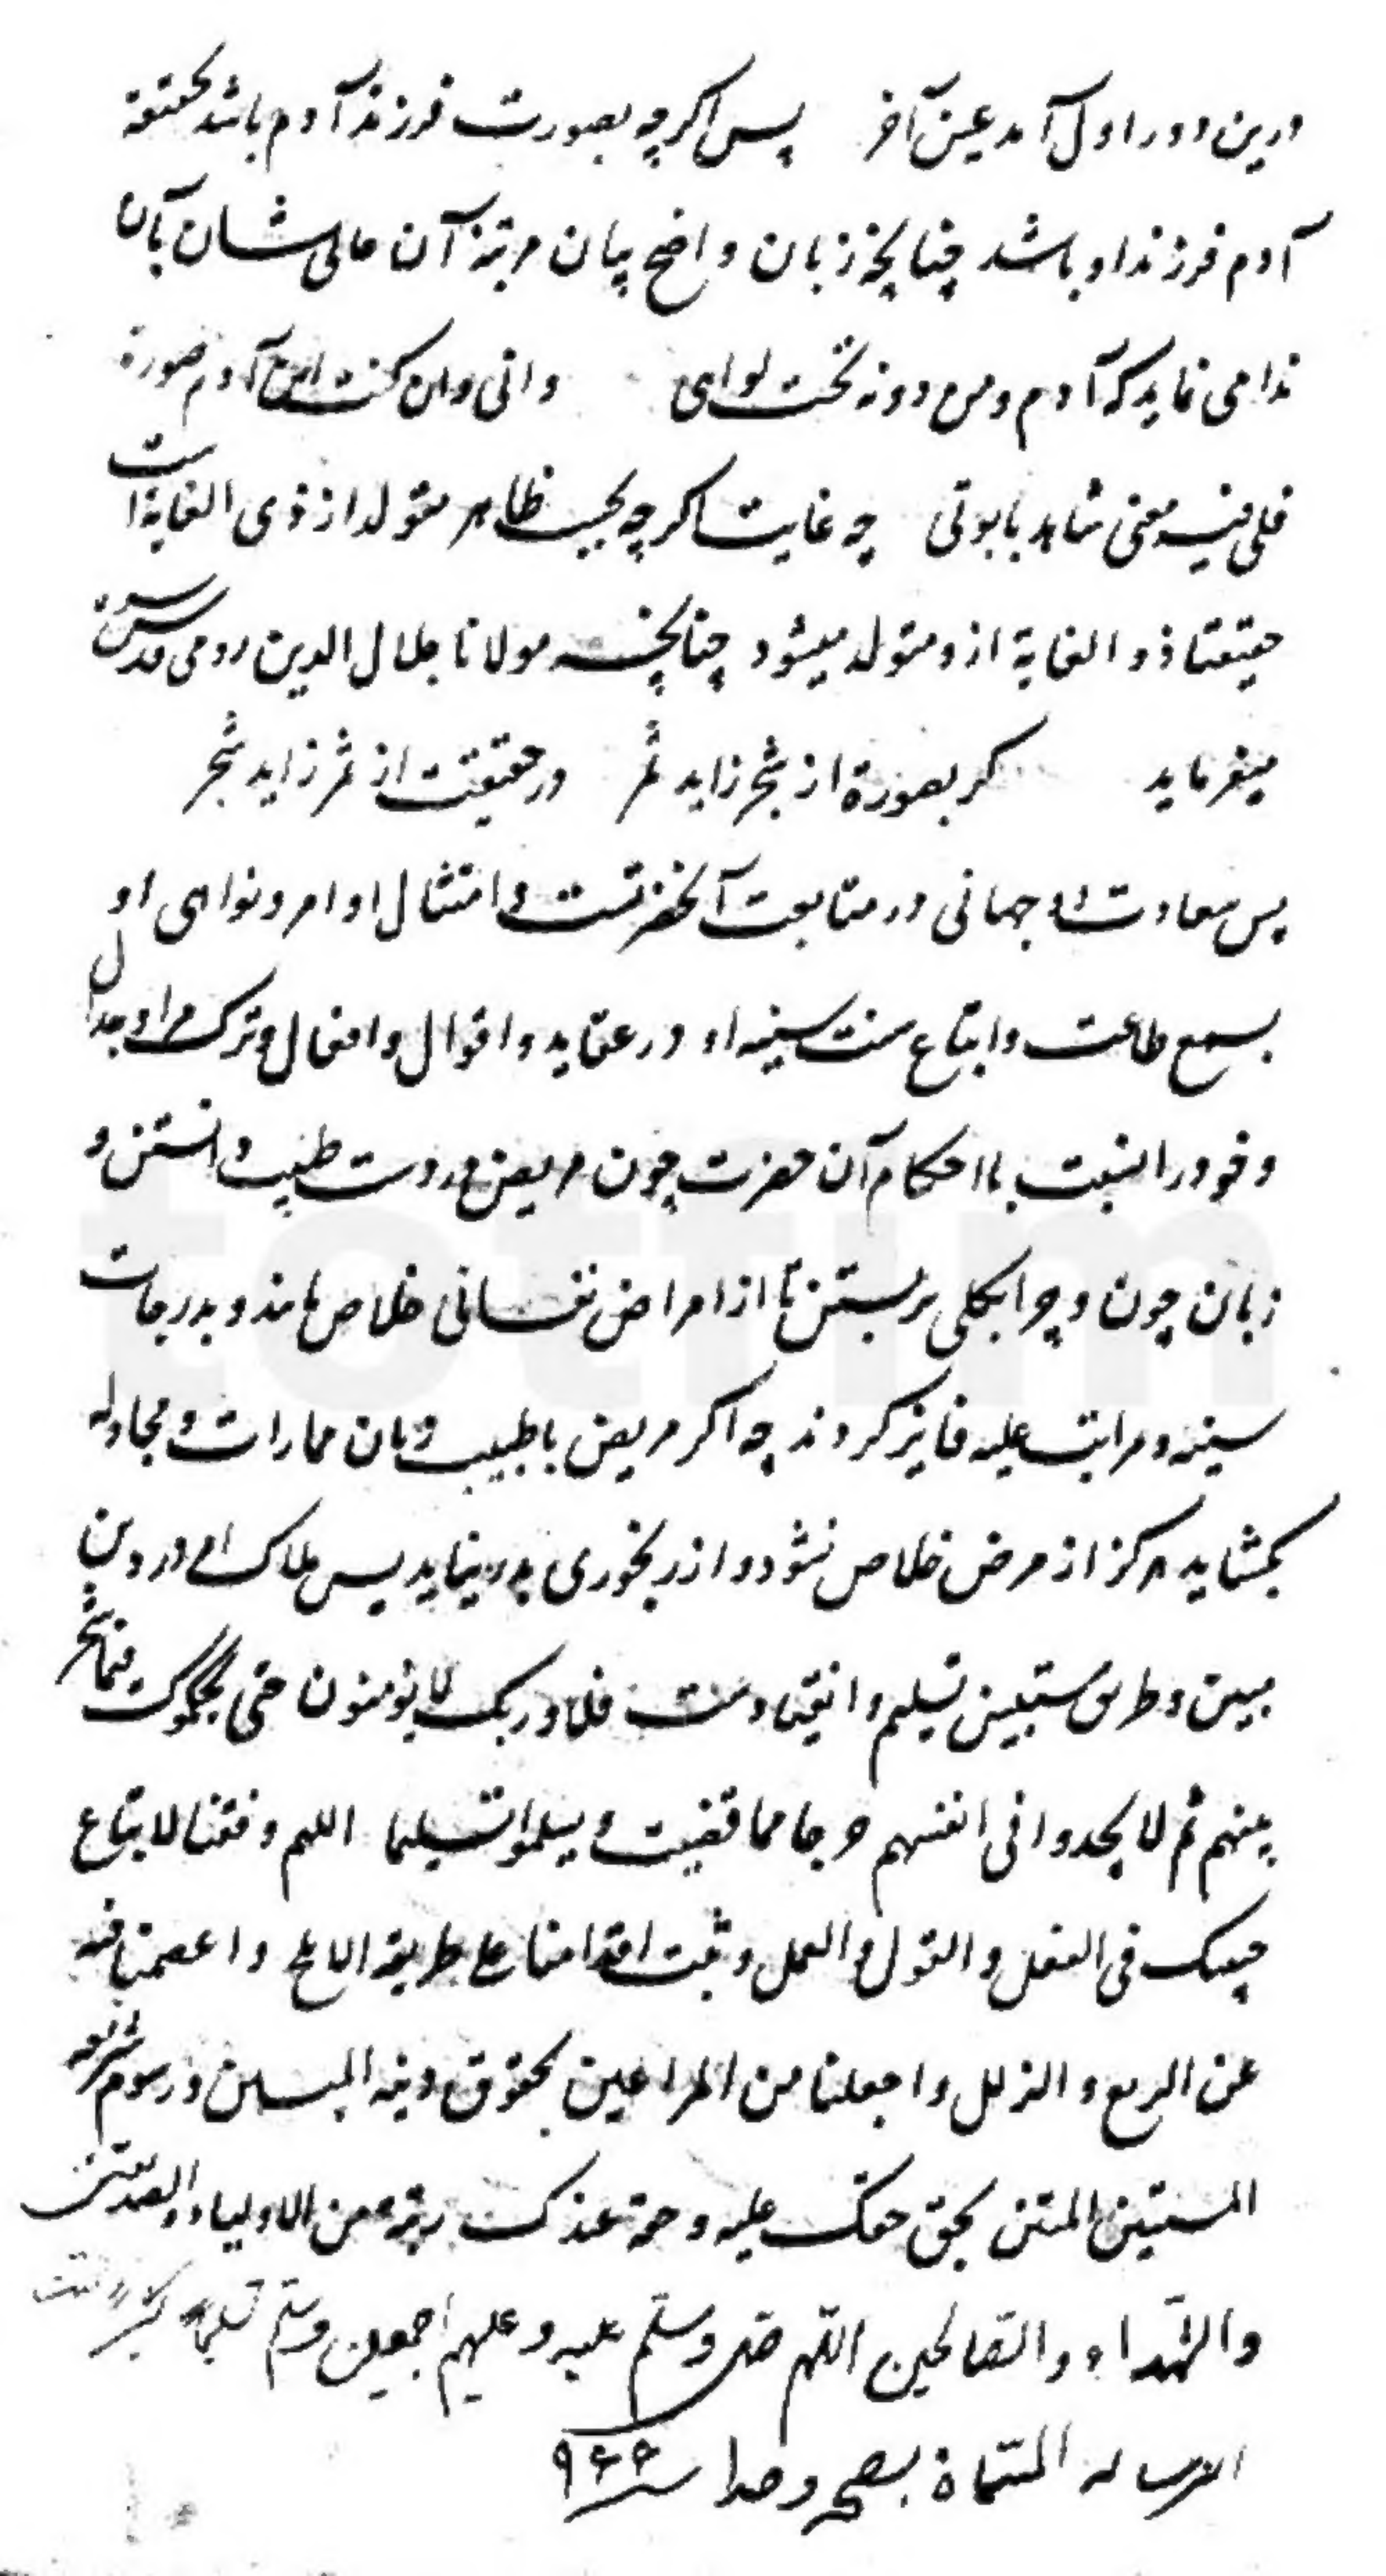 درین دور اول آمد عین آخر پس اگرچه بصورت فرزند آدم باشد بحقیقة
آدم فرزند او باشد چنانچه زبان واضح بیان مرتبهٔ آن عالی شان بآن
ندا می نماید که آدم ومن دونه تحت لوای وانی وان کنت ابن آدم صورة
فلی فیه معنی شاهد بابوتی چه غایت اگرچه بحسب ظاهر متولد از ذی الغایة است
حقیقتا ذو الغایة ازو متولد میشود چنانچه مولانا جلال الدین رومی قدس سره
میفرماید گر بصورة از شجر زاید ثمر در حقیقت از ثمر زاید شجر
پس سعادت دو جهانی در متابعت آنحضرتست و امتثال اوامر و نواهی او
بسمع طاعت و اتباع سنت سنیه او در عقاید و اقوال و افعال و ترک مراء و جدال
و خود را نسبت باحکام آن حضرت چون مریض در دست طبیب دانستن و
زبان چون و چرا بکلی بر بستن تا از امراض نفسانی خلاص یابند و بدرجات
سنیه و مراتب علیه فایز گردند چه اگر مریض با طبیب زبان ممارات و مجادله
بگشاید هرگز از مرض خلاص نشود و از رنجوری بدر نیاید پس ملاک امر در دین
مبین و طریق مستبین تسلیم و انقیادست فلا وربک لا یؤمنون حتی یحکموک فیما شجر
بینهم ثم لا یجدوا فی انفسهم حرجا مما قضیت و یسلموا تسلیما اللهم وفقنا لاتباع
حبیبک فی الفعل والقول والعمل وثبت اقدامنا علی طریقه واعصمنا فیه
عن الزیغ والزلل واجعلنا من المراعین بحقوق دینه المبین ورسوم شرعه
المستبین المتین بحق حقک علیه وحرمة عندک من الاولیاء والصدیقین
والشهداء والصالحین اللهم صل وسلم علیه وعلیهم اجمعین وسلم تسلیما کثیرا تمت
الرساله المسماة بصیحه و صدا سنه ۹۶۶